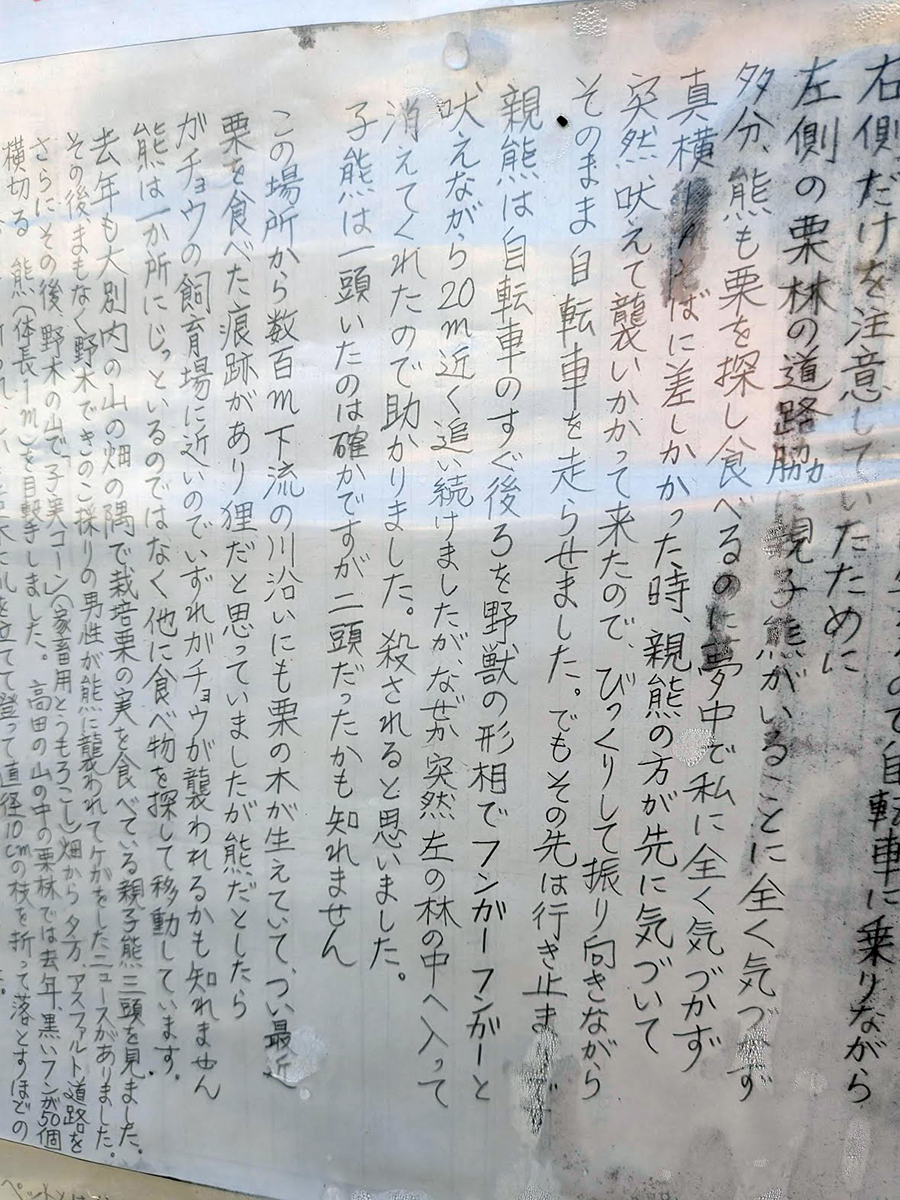 ので自転車に乗りながら
右側だけを注意していたために
左側の栗林の道路脇に親子熊がいることに全く気づかず
多分、熊も栗を探し食べるのに夢中で私に全く気づかず
真横ばに差しかかった時、親熊の方が先に気づいて
突然、吠えて襲いかかって来たので、びっくりして振り向きながら
そのまま自転車を走らせました。でもその先は行き止まりで
親熊は自転車のすぐ後ろを野獣の形相でフンガーフンガーと
吠えながら20m近く追い続けましたが、なぜか突然左の林の中へ入って
消えてくれたので助かりました。殺されると思いました。
子熊は一頭いたのは確かですが二頭だったかも知れません
この場所から数百m下流の川沿いにも栗の木が生えていて、つい最近
栗を食べた痕跡があり狸だと思っていましたが熊だとしたら
ガチョウの飼育場に近いのでいずれガチョウが襲われるかも知れません
熊は一か所にじっといるのではなく他に食べ物を探して移動しています。
去年も大別内の山の畑の隅で栽培栗の実を食べている親子熊三頭を見ました。
その後まもなく野木できのこ採りの男性が熊に襲われてケガをしたニュースがありました。
さらにその後、野木の山で子実コーン(家畜用とうもろこし)畑から夕方、アスファルト道路を
横切る熊(体長1m)を目撃しました。高田の山の中の栗林では去年、黒いフンが50個
立てて登って直径10cmの枝を折って落とすほどの